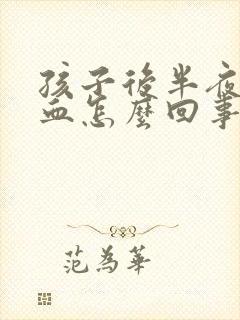 孩子後半夜
血怎麼回事
范為華